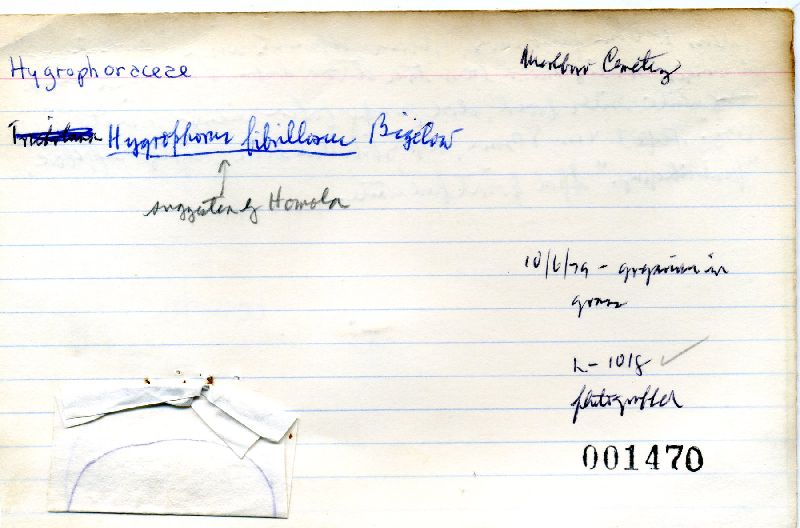 Hygrophoraceae
Marlboro Cemetery
Hygrophorus fibrillosus Bigelow
suggested by Homola
10/6/79 - gregarious in
grass
L-1018 ✓
photographed
001470